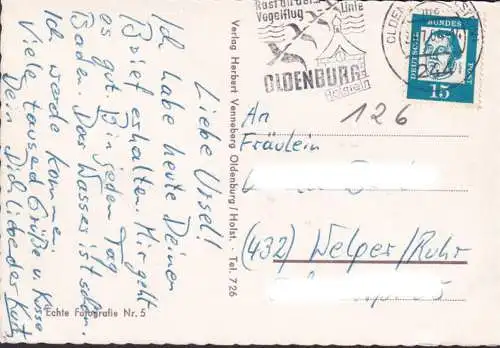 Liebe Ursel!
Ich habe heute Deinen
Brief erhalten. Mir geht
es gut. Bin jeden Tag
Baden. Das Wasser ist schön.
Ich werde kommen
Viele tausend Grüße u Küsse
Dein Dich liebender Kurt
Echte Fotografie Nr. 5
Verlag Herbert Venneberg Oldenburg/Holst. Tel. 726
Rast an der
Vogelfluglinie
OLDENBURG
Holstein
DEUTSCHE BUNDESPOST
15
126
An
Fräulein
(432) Welper/Ruhr